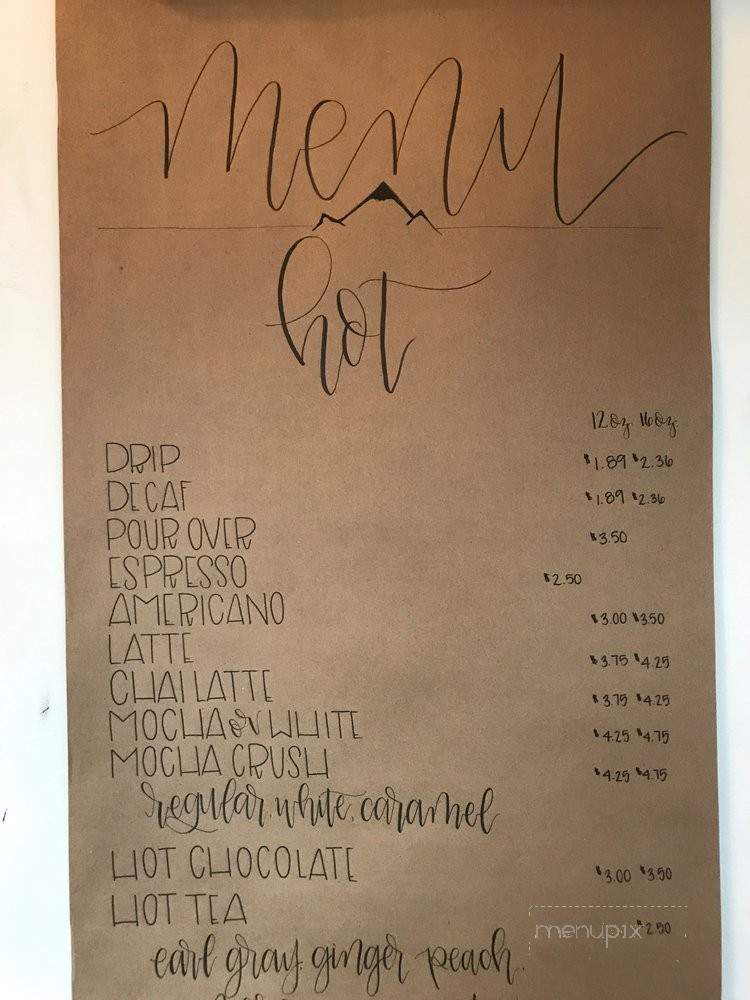 menu
hot
12oz 16oz
DRIP $1.89 $2.36
DECAF $1.89 $2.36
POUR OVER $3.50
ESPRESSO $2.50
AMERICANO $3.00 $3.50
LATTE $3.75 $4.25
CHAI LATTE $3.75 $4.25
MOCHA or WHITE $4.25 $4.75
MOCHA CRUSH $4.25 $4.75
regular, white, caramel
HOT CHOCOLATE $3.00 $3.50
HOT TEA $2.50
menupix
earl gray, ginger peach,